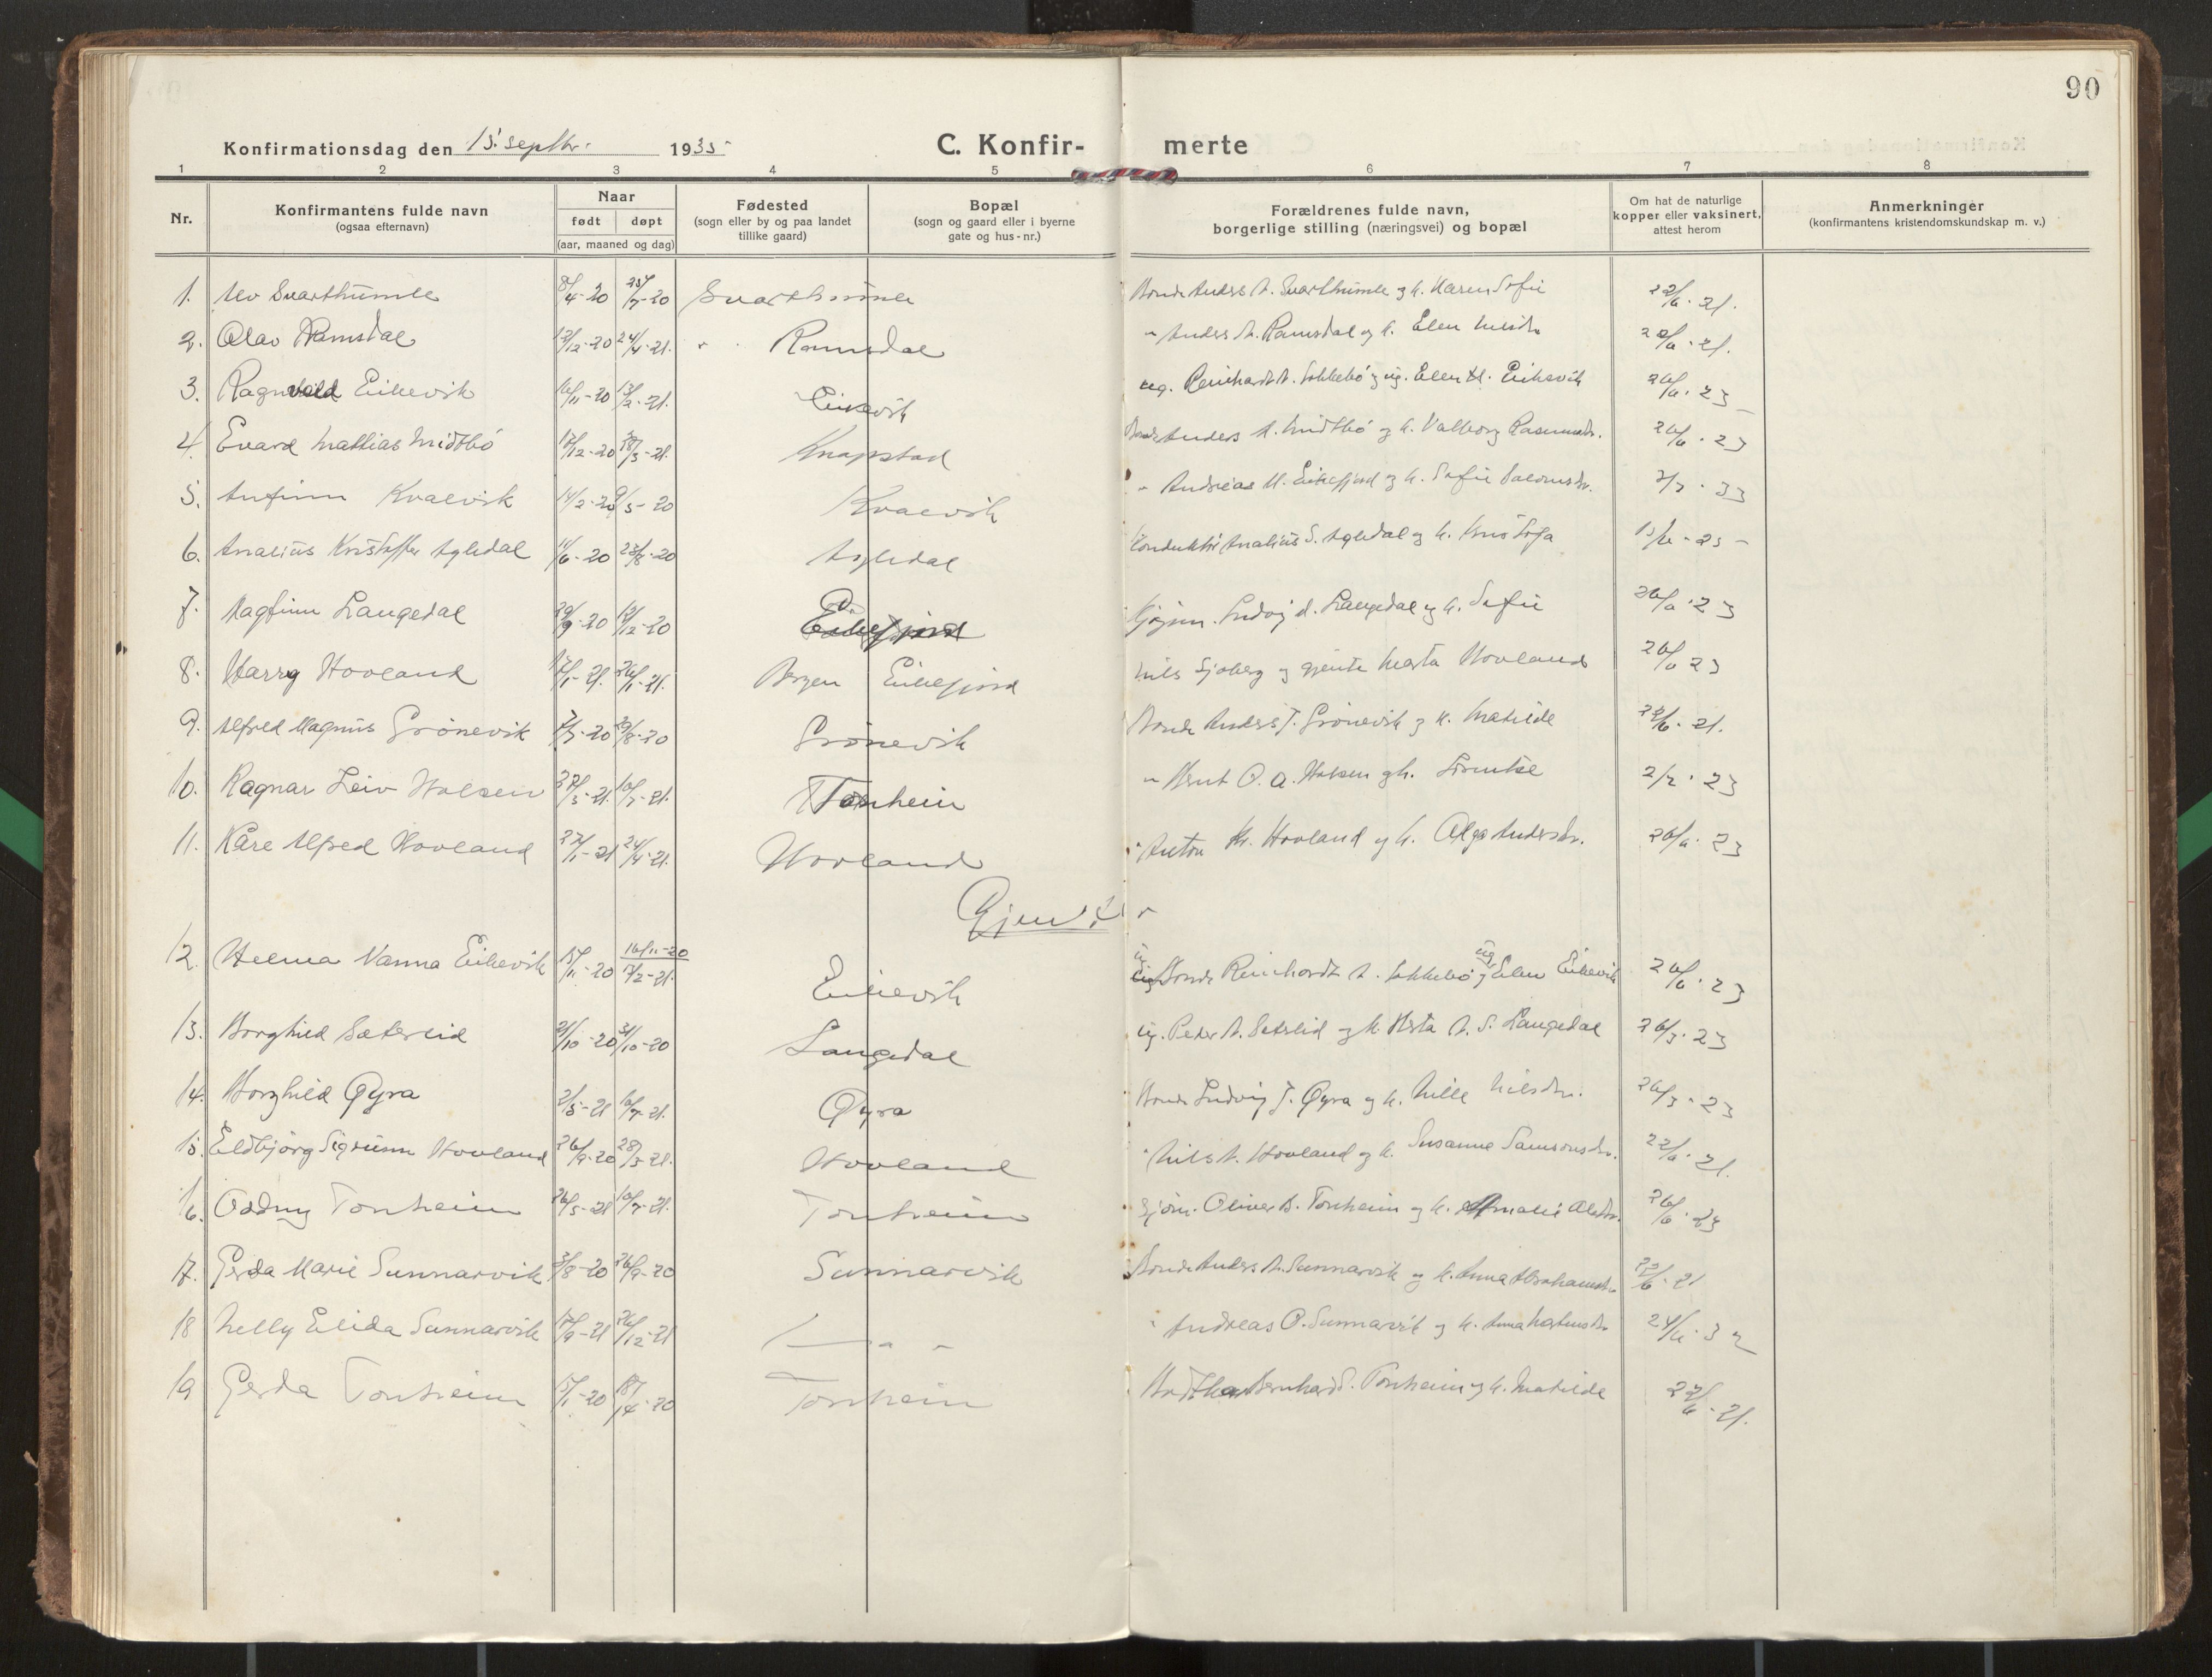 90
Konfirmationsdag den 15. septbr. 1935
C. Konfirmerte
1 2 3 4 5 6 7 8
Nr.
Konfirmantens fulde navn
(ogsaa efternavn)
Naar
født døpt
(aar, maaned og dag)
Fødested
(sogn eller by og paa landet
tillike gaard)
Bopæl
(sogn og gaard eller i byerne
gate og hus-nr.)
Forældrenes fulde navn,
borgerlige stilling (næringsvei) og bopæl
Om hat de naturlige
kopper eller vaksinert,
attest herom
Anmerkninger
(konfirmantens kristendomskundskap m. v.)
1. Alv Svarthumle 8/4-20 25/7-20 Svarthumle Bonde Anders A. Svarthumle og h. Karen Sofie 22/6-21.
2. Olav Ramsdal 12/12-20 24/4-21. " Ramsdal " Anders A. Ramsdal og h. Elen Nilsdr. 22/6-21.
3. Ragnvald Eikevik 16/11-20 13/2-21. Eikevik ug. Reinhardt A. Sokkebø og ug. Elen M. Eikevik 26/6-23
4. Evard Mathias Midtbø 12/12-20 28/3-21. Knapstad Bonde Anders A. Midtbø og h. Valborg Rasmusdr. 26/6-23
5. Anfinn Kvalvik 14/2-20 9/5-20 Kvalvik " Andreas M. Eikefjord og h. Sofie Salomdr. 7/7-33
6. Analius Kristoffer Apledal 11/6-20 23/8-20 Apledal Konduktør Analius S. Apledal og h. 13/6-25
7. Magfinn Langedal 29/9-20 12/12-20 Eikefjord Gjøgnm. Ludvig A. Langedal og h. Sofie 26/6-23
8. Harry Hovland 17/1-21. 26/1-21. Bergen Eikefjord Nils Sjøberg og gjente Marta Hovland 26/6 23
9. Alfred Magnus Grønevik 7/7-20 29/8-20 Grønevik Bonde Anders J. Grønevik og h. Matilde 22/6-21.
10. Ragnar Leiv Holsen 27/3-21. 10/7-21. Tonheim " Bernt O. A. Holsen og h. 2/2-23
11. Kåre Alfred Hovland 27/1-21 24/4-21. Hovland " Anton M. Hovland og h. Olga Andersdr. 26/6-23
Gjentor
12. Helma Nanna Eikevik 15/11-20 16/11-20 13/2-21. Eikevik ug. Bonde Reinhardt A. Sokkebø og ug. Elen Eikevik 26/6-23
13. Borghild Sætereid 21/10-20 31/10-20 Langedal ug. Peder A. Setereid og h. Berta A. S. Langedal 26/3-23
14. Borghild Øyra 2/5-21 10/7-21. Øyra Bonde Ludvig J. Øyra og h. Mille Nilsdr. 26/3-23
15. Eldbjørg Sigrunn Hovland 26/9-20 28/3-21. Hovland " Nils A. Hovland og h. Susanne Samsonsdr. 22/6-21.
16. Oddny Tonheim 26/5-21 10/7-21. Tonheim Gjørn. Oliver B. Tonheim og h. Amalie Olsdr. 26/6-23
17. Gerda Marie Sunnarvik 3/8-20 26/9-20 Sunnarvik Bonde Anders A. Sunnarvik og h. Anna Abrahamsdr. 22/6-21
18 Nelly Elida Sunnarvik 17/9-21 26/12-21 — " — " Andreas O. Sunnarvik og h. Anna Martinsdr. 24/6-32
19 Gerda Tonheim 5/1-20 18/4-20 Tonheim Bernhard S. Tonheim og h. Matilde 22/6-21.